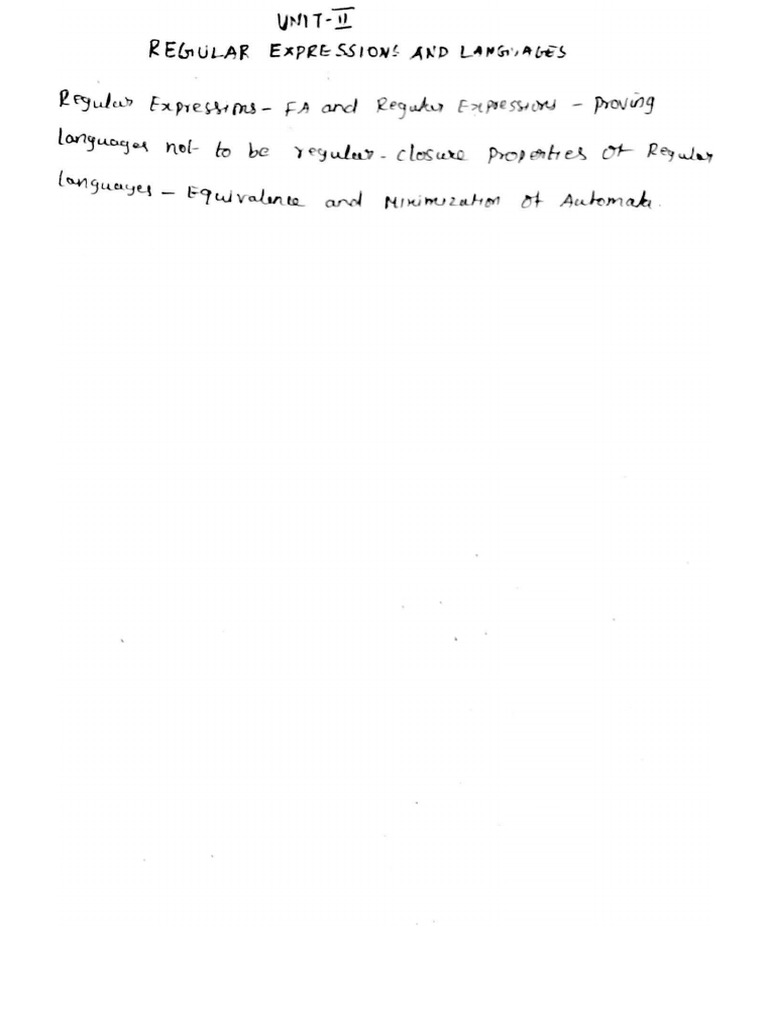 UNIT-II
REGULAR EXPRESSIONS AND LANGUAGES
Regular Expressions - FA and Regular Expressions - Proving
languages not to be regular - closure Properties of Regular
languages - Equivalence and Minimization of Automata.